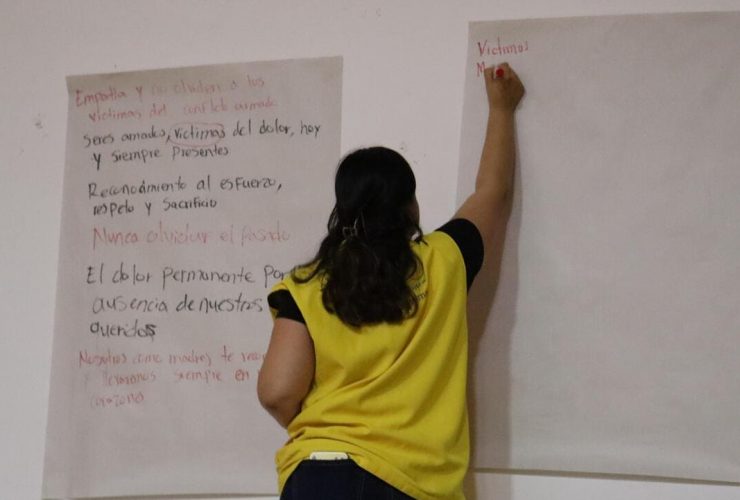 Empatía y no olvidar a las
víctimas del conflicto armado
Seres amados, víctimas del dolor, hoy
y siempre presentes
Reconocimiento al esfuerzo,
respeto y sacrificio
Nunca olvidar el pasado
El dolor permanente por
ausencia de nuestros
queridos
Nosotros como madres te
y llevaremos siempre en
corazones
Victimas
M